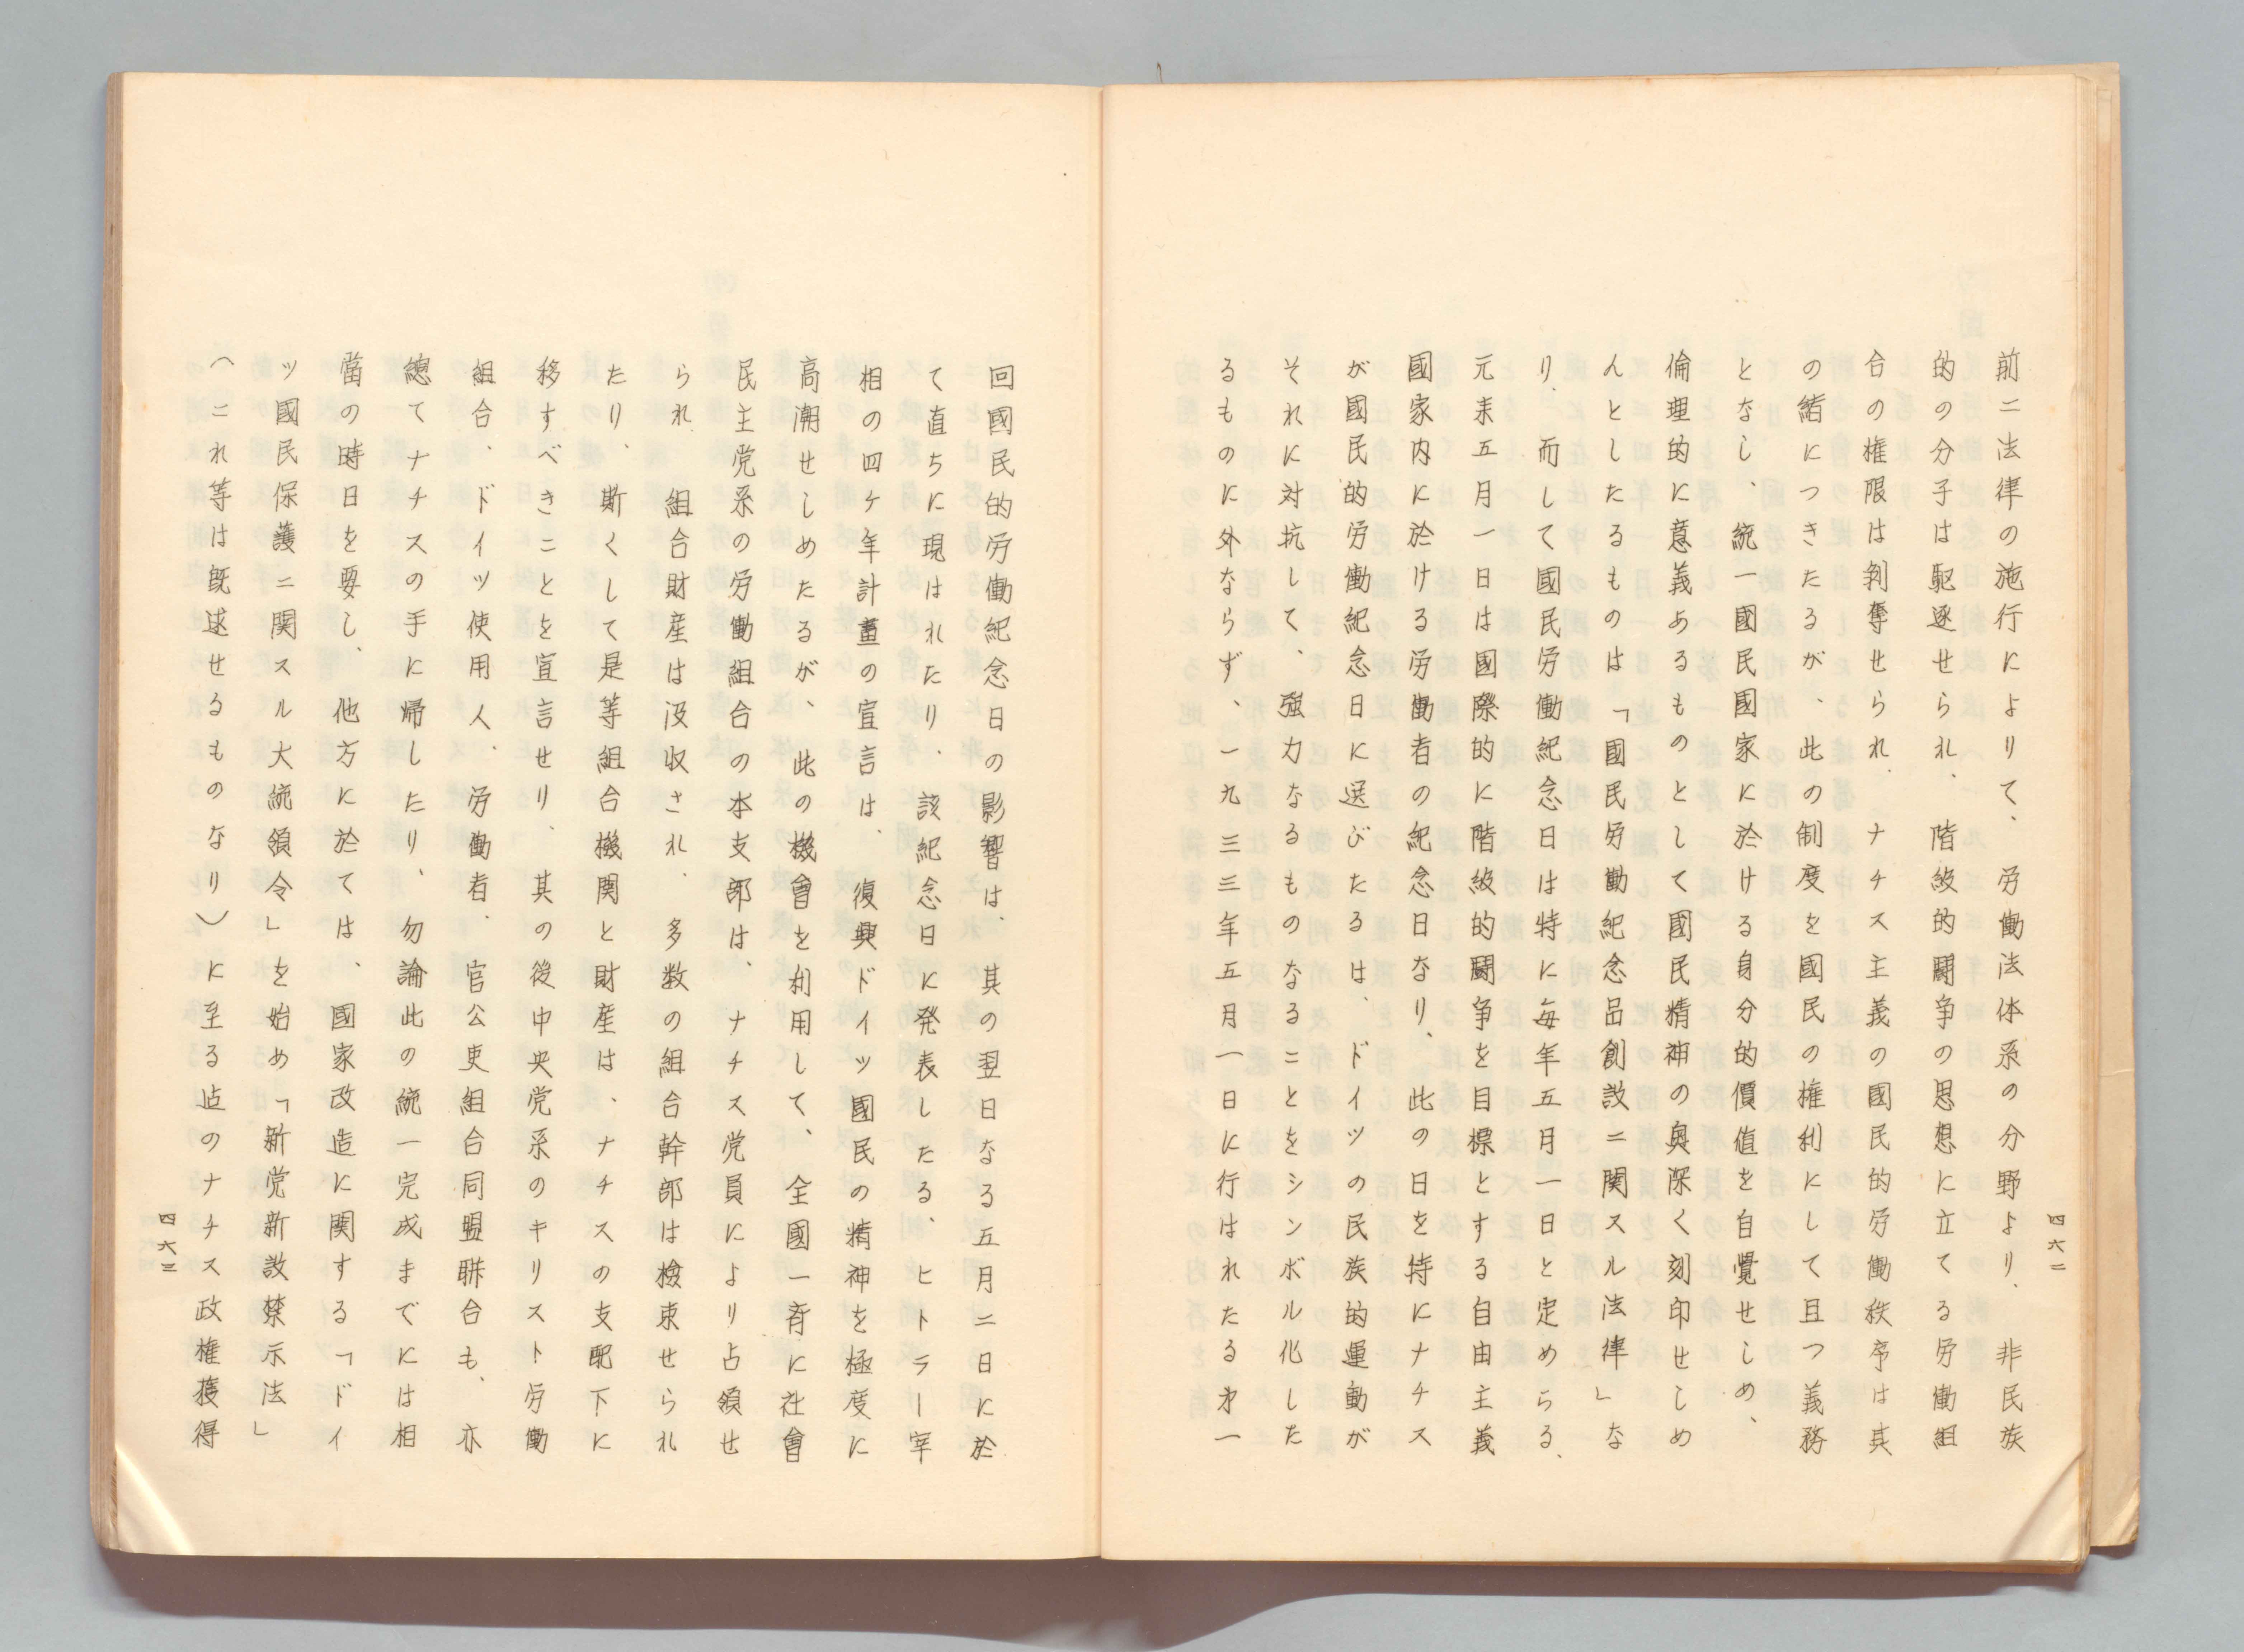 前ニ法律の施行によりて、労働法体系の分野より、非民族
的の分子は駆逐せられ、階級的闘争の思想に立てる労働組
合の権限は剥奪せられ、ナチス主義の國民的労働秩序は其
の緒につきたるが、此の制度を國民の権利にして且つ義務
となし、統一國民國家に於ける自分的價値を自覺せしめ、
倫理的に意義あるものとして國民精神の奥深く刻印せしめ
んとしたるものは「國民労働紀念日創設ニ関スル法律」な
り、而して國民労働紀念日は特に毎年五月一日と定めらる、
元来五月一日は國際的に階級的闘争を目標とする自由主義
國家内に於ける労働者の紀念日なり、此の日を特にナチス
が國民的労働紀念日に選びたるは、ドイツの民族的運動が
それに対抗して、強力なるものなることをシンボル化した
るものに外ならず、一九三三年五月一日に行はれたる才一
四六二
回國民的労働紀念日の影響は、其の翌日なる五月二日に於
て直ちに現はれたり、該紀念日に発表したる、ヒトラー宰
相の四ケ年計畫の宣言は、復興ドイツ國民の精神を極度に
高潮せしめたるが、此の機會を利用して、全國一斉に社會
民主党系の労働組合の本支部は、ナチス党員により占領せ
られ、組合財産は没収され、多数の組合幹部は検束せられ
たり、斯くして是等組合機関と財産は、ナチスの支配下に
移すべきことを宣言せり、其の後中央党系のキリスト労働
組合、ドイツ使用人、労働者、官公吏組合同盟聯合も、亦
總てナチスの手に帰したり、勿論此の統一完成までには相
當の時日を要し、他方に於ては、國家改造に関する「ドイ
ツ國民保護ニ関スル大統領令」を始め「新党新設禁示法」
(これ等は既述せるものなり)に至る迠のナチス政権獲得
四六三